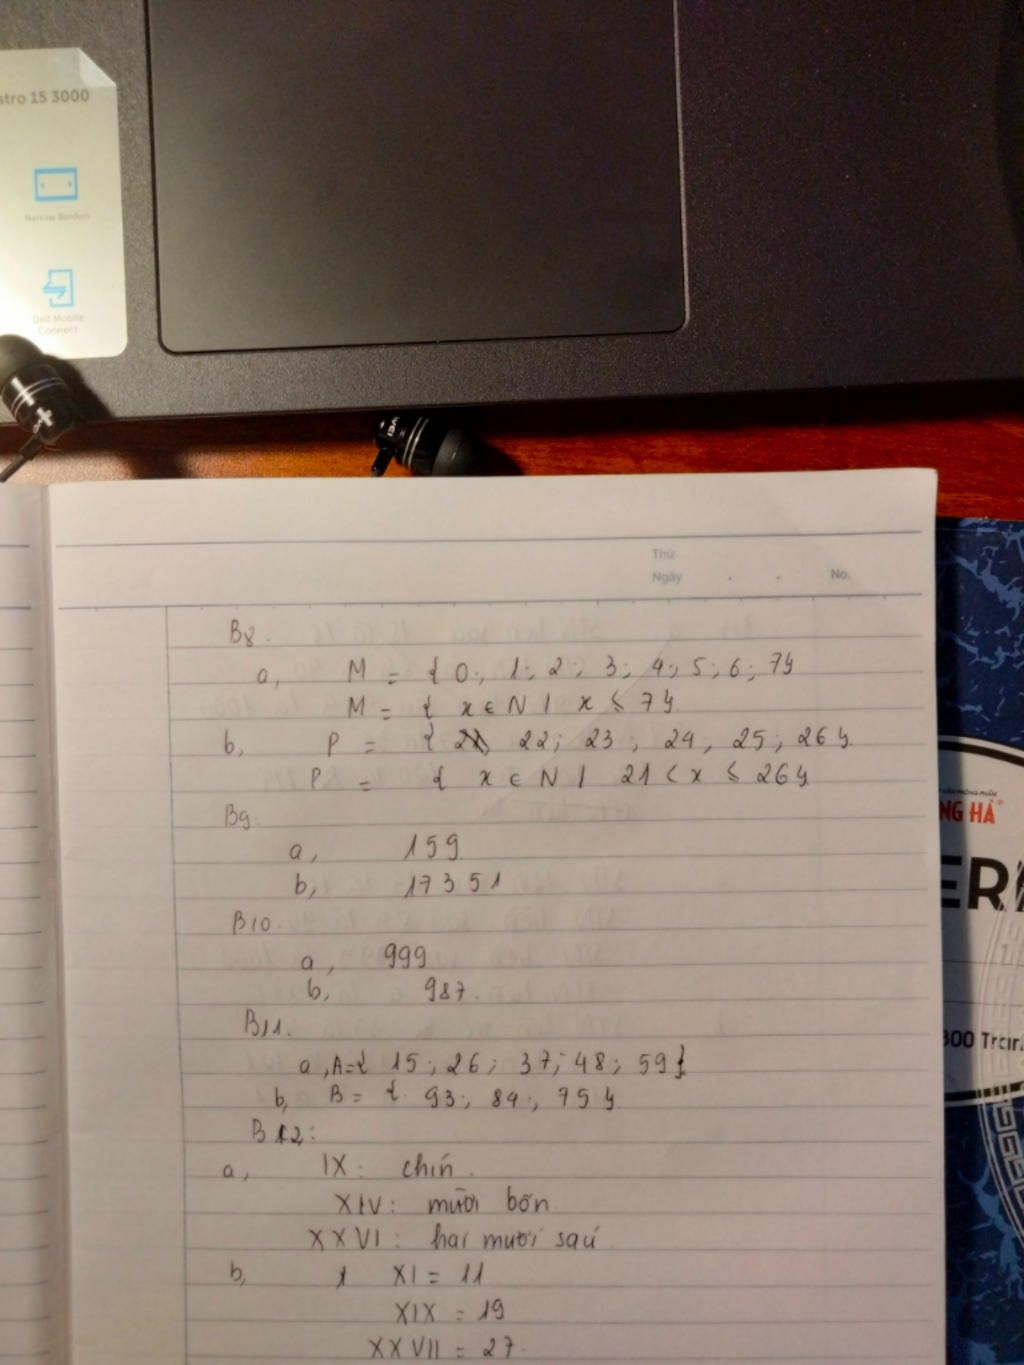 stro 15 3000
Narrow Borders
Dell Mobile
Connect
Thứ
Ngày . . No.
B8.
a, M = { 0; 1; 2; 3; 4; 5; 6; 7}
M = { x ∈ N | x ≤ 7}
b, P = { 22; 23; 24, 25; 26}
P = { x ∈ N | 21 < x ≤ 26}
B9.
a, 159
b, 17351
B10.
a, 999
b, 987.
B11.
a, A={ 15; 26; 37; 48; 59}
b, B = { 93; 84; 75}
B12:
a, IX: chín.
XIV: mười bốn
XXVI: hai mươi sáu.
b, XI = 11
XIX = 19
XXVII = 27.
NG HÀ
ER
300 Trcin